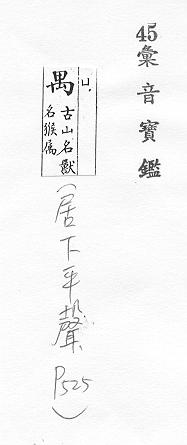 45彙音寶鑑
凵.
禺 古山名獸
名猴屬
(居下平聲P525)